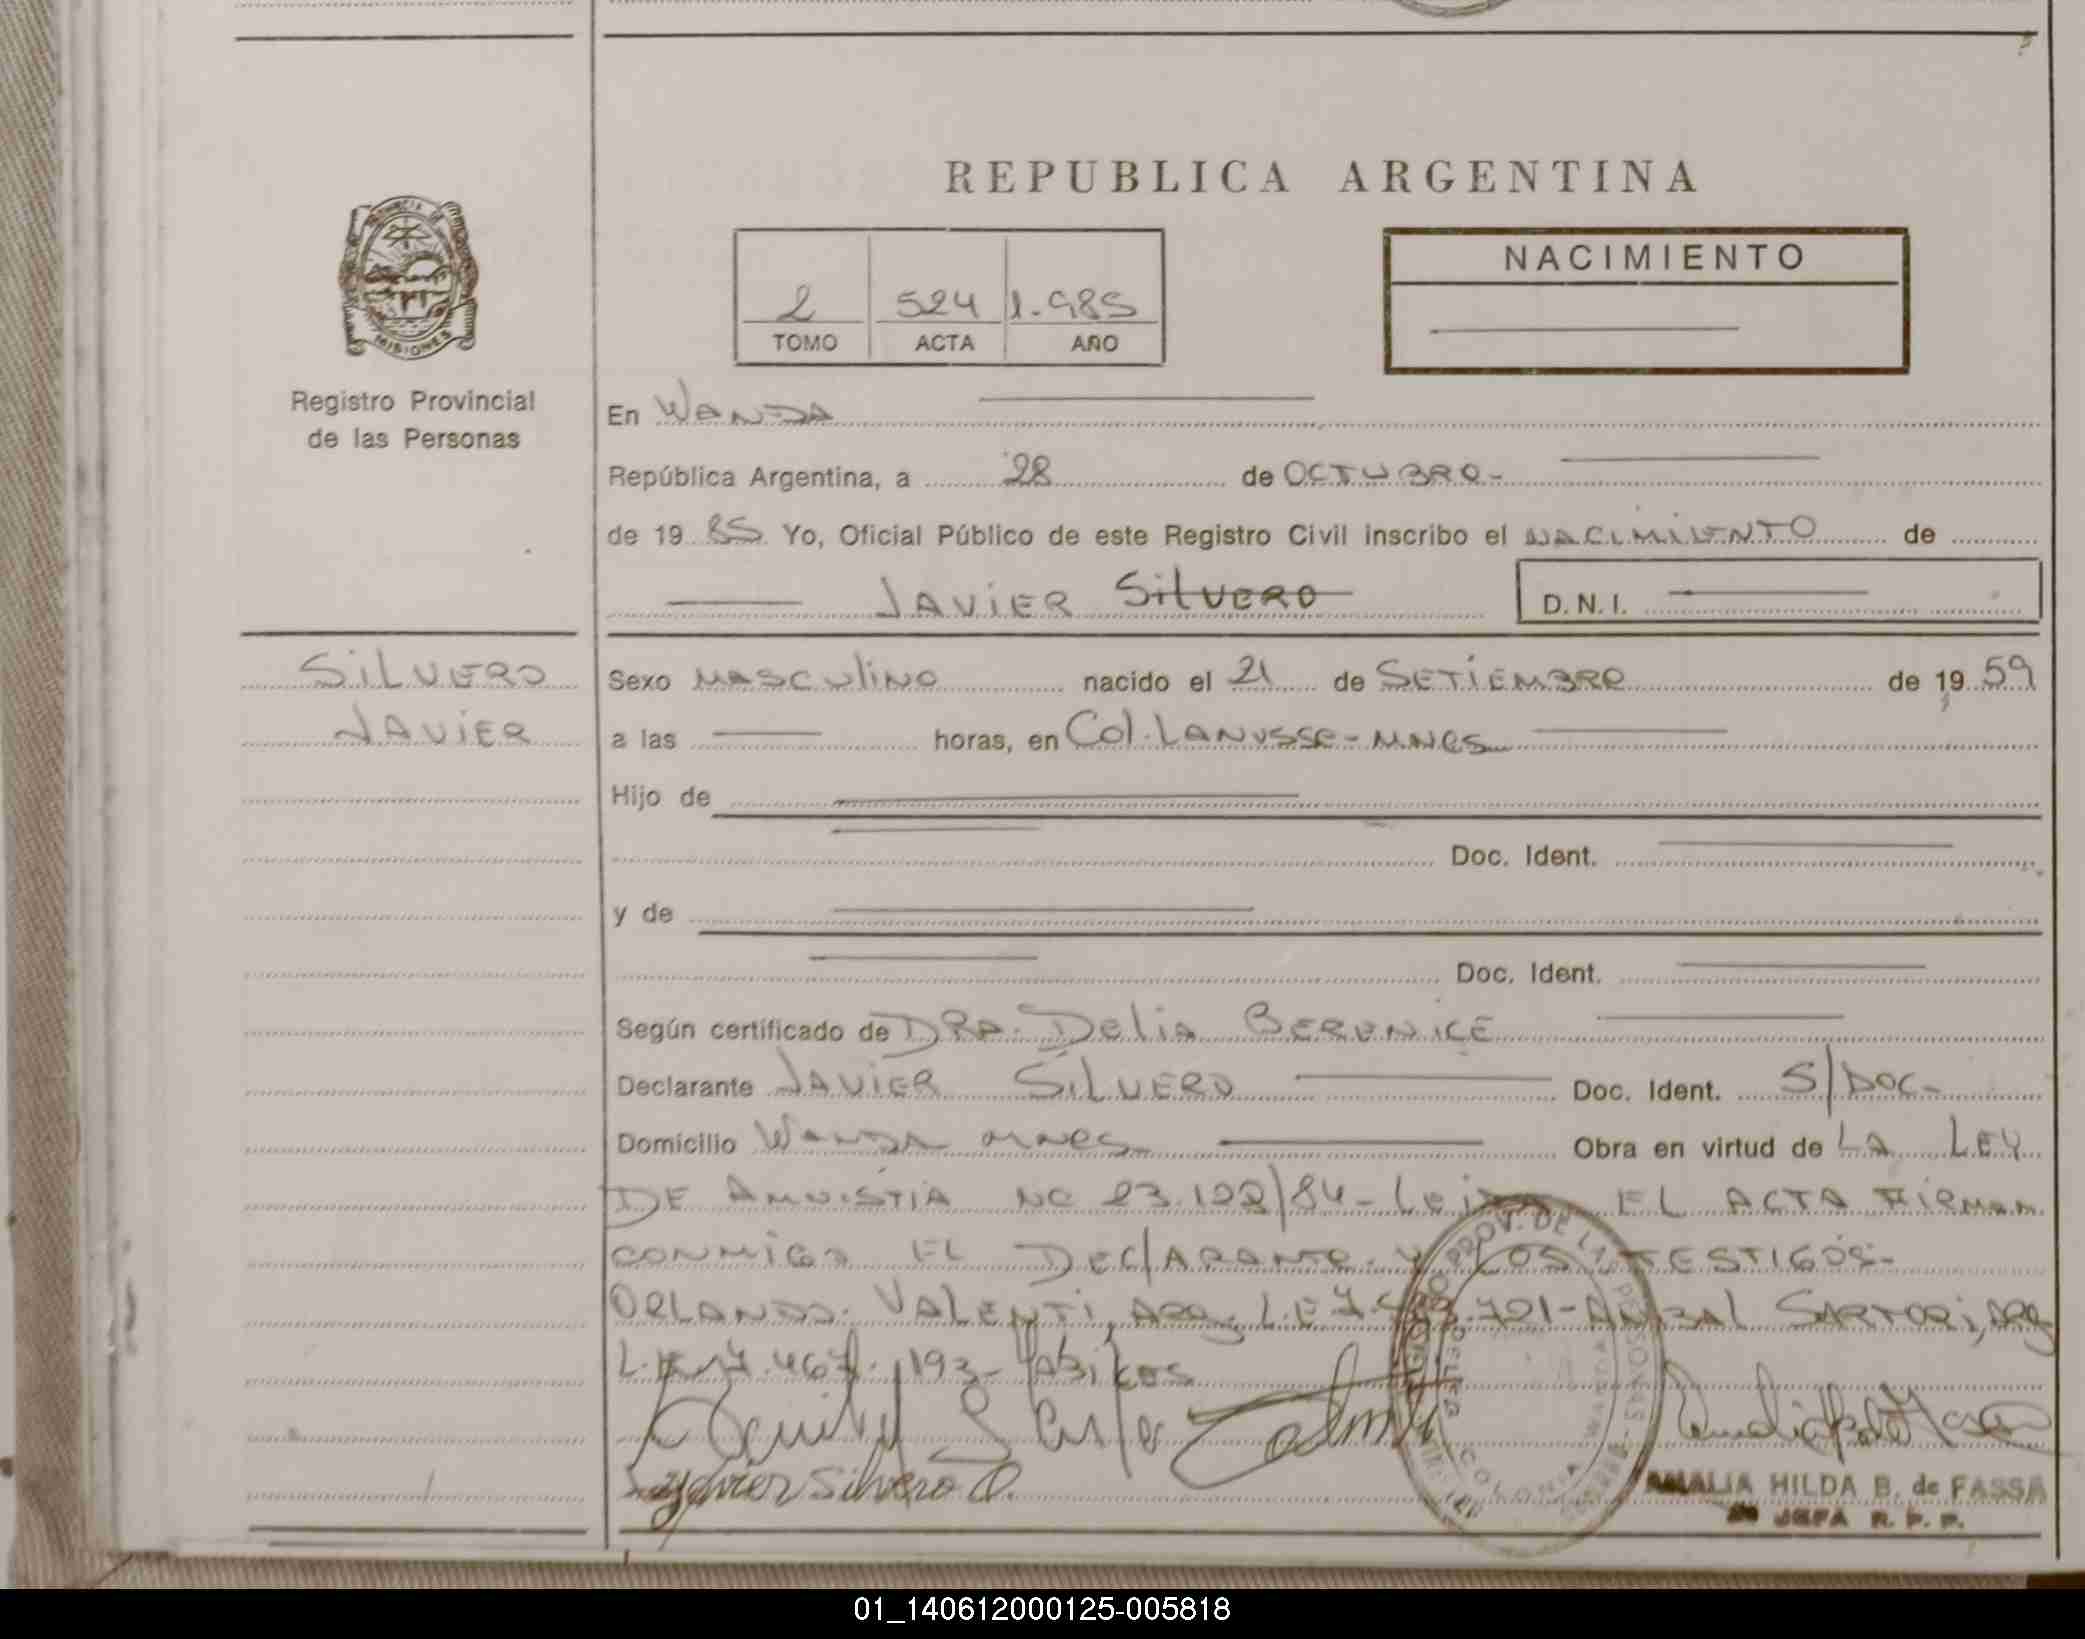 REPUBLICA ARGENTINA
PROVINCIA DE
MISIONES
Registro Provincial
de las Personas
2 524 1.985
TOMO ACTA AÑO
NACIMIENTO
En WANDA
República Argentina, a 28 de OCTUBRE-
de 19 85 Yo, Oficial Público de este Registro Civil inscribo el NACIMIENTO de
JAVIER SILVERO D.N.I.
SILVERO
JAVIER
Sexo MASCULINO nacido el 21 de SETIEMBRE de 19 59
a las horas, en Col. LANUSSE - MNES
Hijo de
Doc. Ident.
y de
Doc. Ident.
Según certificado de DRA. DELIA BERENICE
Declarante JAVIER SILVERO Doc. Ident. S/DOC-
Domicilio WANDA MNES Obra en virtud de LA LEY
DE AMNISTIA NO 23.122/84- Leida EL ACTA FIRMAN
CONMIGO EL DECLARANTE Y LOS TESTIGOS-
ORLANDO VALENTI, ARG. L.E 7. .721- ANIBAL SARTORI, ARG
L.E 7.467.193-
Javier Silvero
PROV. DE LAS PERSONAS
COLONIA WANDA
AMALIA HILDA B. de FASSA
JEFA R. P. P.
01_140612000125-005818